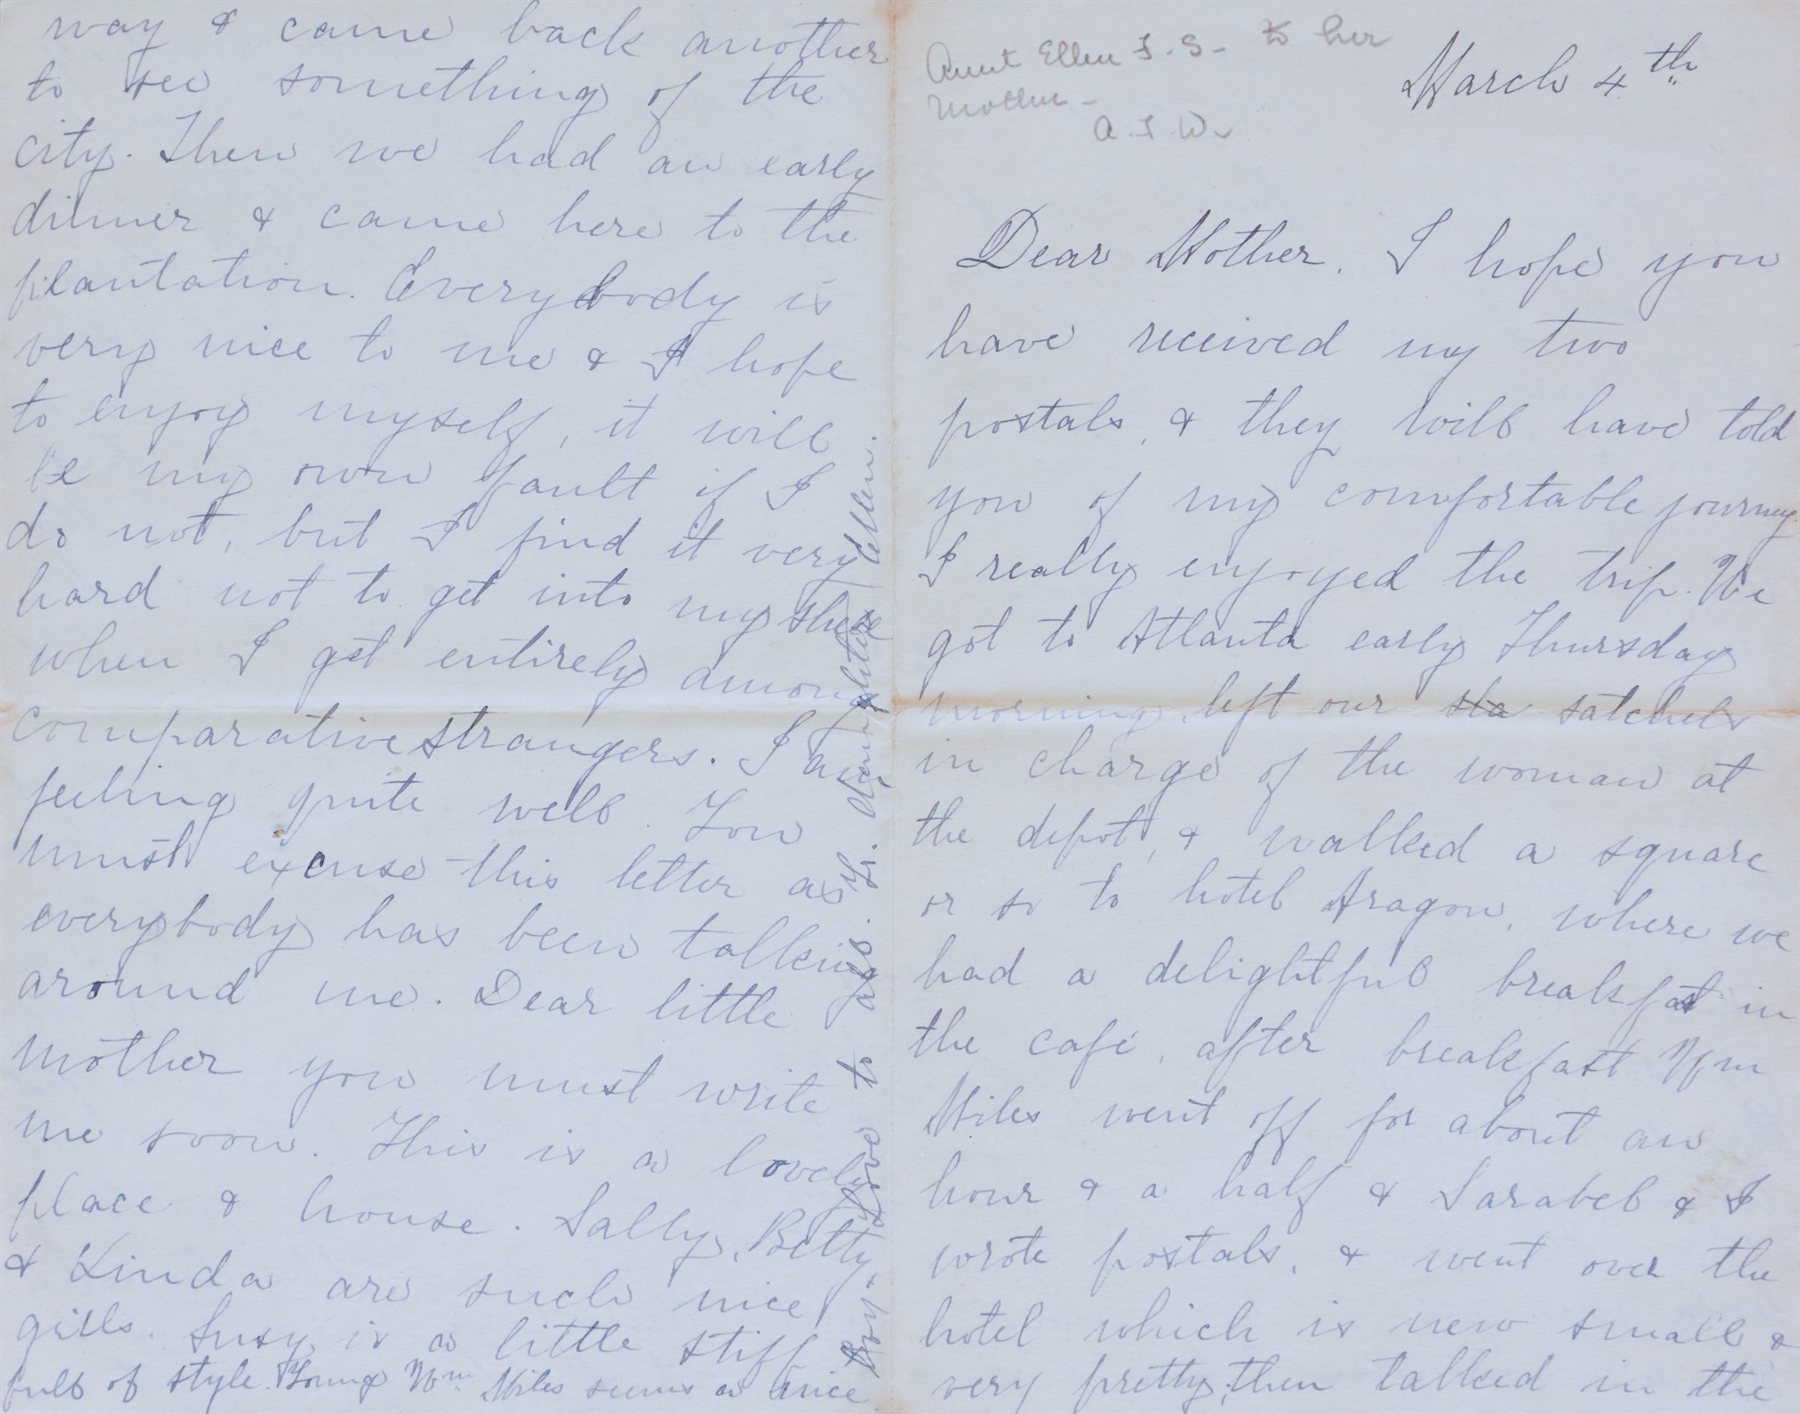 Aunt Ellen I. S. - to her
Mother -
A. I. W.
March 4th
Dear Mother. I hope you
have received my two
postals, & they will have told
you of my comfortable journey.
I really enjoyed the trip. We
got to Atlanta early Thursday
morning, left our sta satchels
in charge of the woman at
the depot, & walked a square
or so to hotel Aragon, where we
had a delightful breakfast in
the café, after breakfast Wm
Miles went off for about an
hour & a half & Sarabel & I
wrote postals, & went over the
hotel which is new small &
very pretty, then talked in the
way & came back another
to see something of the
city. Then we had an early
dinner & came here to the
plantation. Everybody is
very nice to me & I hope
to enjoy myself, it will
be my own fault if I
do not, but I find it very
hard not to get into my shell
when I get entirely among
comparative strangers. I am
feeling quite well. You
must excuse this letter as
everybody has been talking
around me. Dear little
mother you must write
me soon. This is a lovely
place & house. Sally, Betty,
& Linda are such nice
girls. Susy is a little stiff
full of style. Young Wm Miles seems a nice
boy. Love to all. Yr. daughter Ellen.